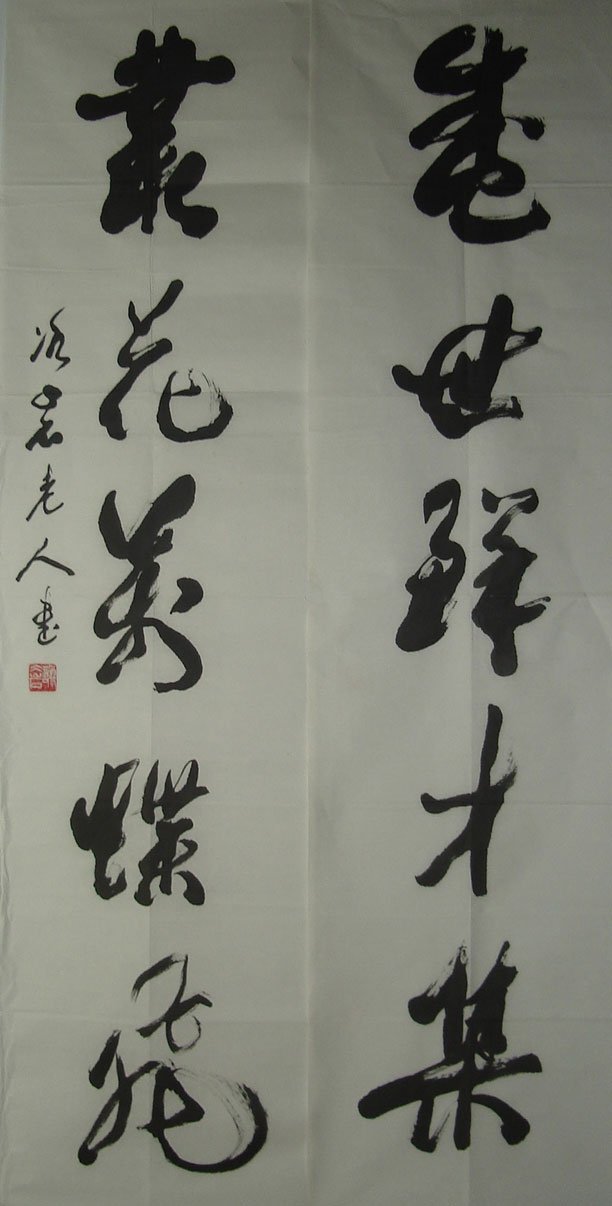 盛世群才集
叢花萬蝶飛
老人書